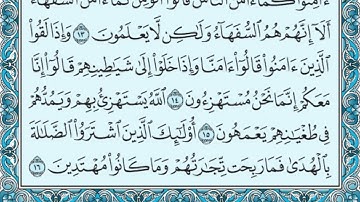 ءَامِنُوا۟ كَمَآ ءَامَنَ ٱلنَّاسُ قَالُوٓا۟ أَنُؤْمِنُ كَمَآ ءَامَنَ ٱلسُّفَهَآءُ
أَلَآ إِنَّهُمْ هُمُ ٱلسُّفَهَآءُ وَلَٰكِن لَّا يَعْلَمُونَ ١٣ وَإِذَا لَقُوا۟
ٱلَّذِينَ ءَامَنُوا۟ قَالُوٓا۟ ءَامَنَّا وَإِذَا خَلَوْا۟ إِلَىٰ شَيَٰطِينِهِمْ قَالُوٓا۟ إِنَّا
مَعَكُمْ إِنَّمَا نَحْنُ مُسْتَهْزِءُونَ ١٤ ٱللَّهُ يَسْتَهْزِئُ بِهِمْ وَيَمُدُّهُمْ
فِى طُغْيَٰنِهِمْ يَعْمَهُونَ ١٥ أُو۟لَٰٓئِكَ ٱلَّذِينَ ٱشْتَرَوُا۟ ٱلضَّلَٰلَةَ
بِٱلْهُدَىٰ فَمَا رَبِحَت تِّجَٰرَتُهُمْ وَمَا كَانُوا۟ مُهْتَدِينَ ١٦